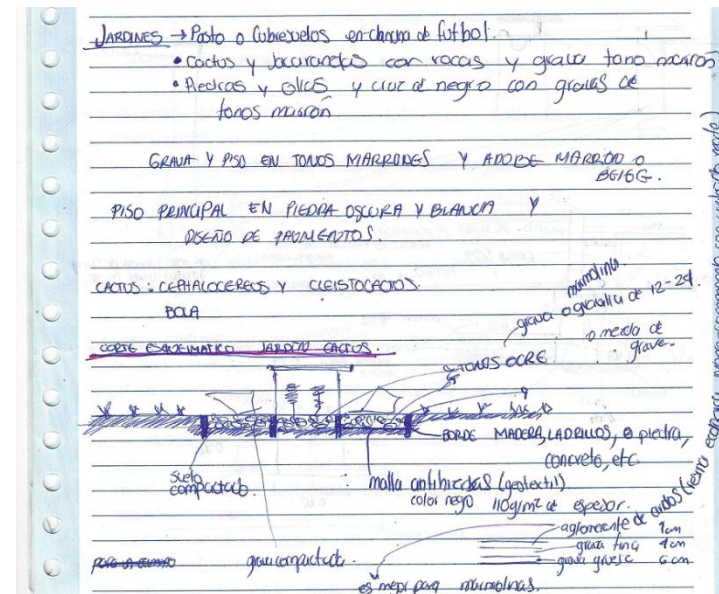 JARDINES → Pasto o Cubresuelos en cancha de futbol.
• Cactus y Jacarandas con rocas y grava tono marron
• Piedras y ollas y cruz de negro con gravas de
tonos marrón
GRAVA Y PISO EN TONOS MARRONES Y ADOBE MARRON O
BEIGE.
PISO PRINCIPAL EN PIEDRA OSCURA Y BLANCA Y
DISEÑO DE PAVIMENTOS
CACTUS: CEPHALOCEREUS Y CLEISTOCACTUS.
BOLA
marmolina
grava o gravilla de 12-24
o mezcla de
grava.
CORTE ESQUEMATICO JARDIN CACTUS.
TONOS OCRE
BORDE MADERA, LADRILLOS, o piedra,
concreto, etc.
suelo
compactado.
malla antihierbas (geotextil)
color negro 110g/m² de espesor.
aglomerante de aridos (resina
1cm
grava fina 4cm
grava gruesa 6cm
grava compactada.
es mejor para marmolinas.